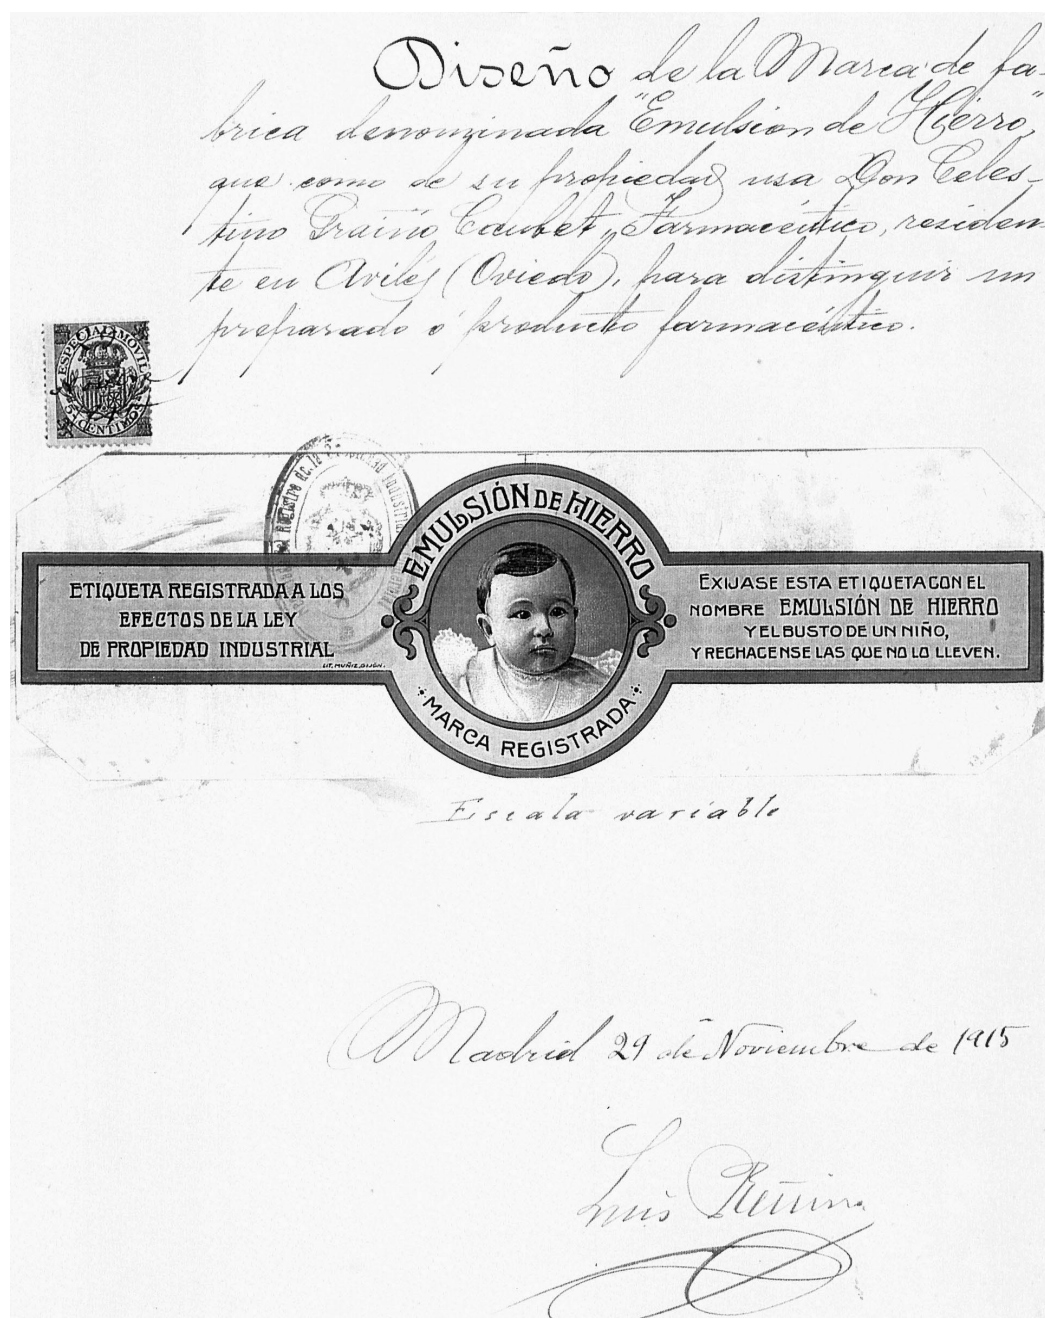 Diseño de la Marca de fá-
brica denominada "Emulsión de Hierro",
que como de su propiedad usa Don Celes-
tino Graíño Caubet, Farmacéutico, residen-
te en Avilés (Oviedo), para distinguir un
preparado ó producto farmacéutico.
ESPECIAL MOVIL
5 CENTIMOS
Registro de la Propiedad Industrial
EMULSIÓN DE HIERRO
ETIQUETA REGISTRADA A LOS
EFECTOS DE LA LEY
DE PROPIEDAD INDUSTRIAL
LIT. MUÑIZ. GIJÓN.
EXIJASE ESTA ETIQUETA CON EL
NOMBRE EMULSIÓN DE HIERRO
Y EL BUSTO DE UN NIÑO,
Y RECHACENSE LAS QUE NO LO LLEVEN.
MARCA REGISTRADA
Escala variable
Madrid 29 de Noviembre de 1915
Luis